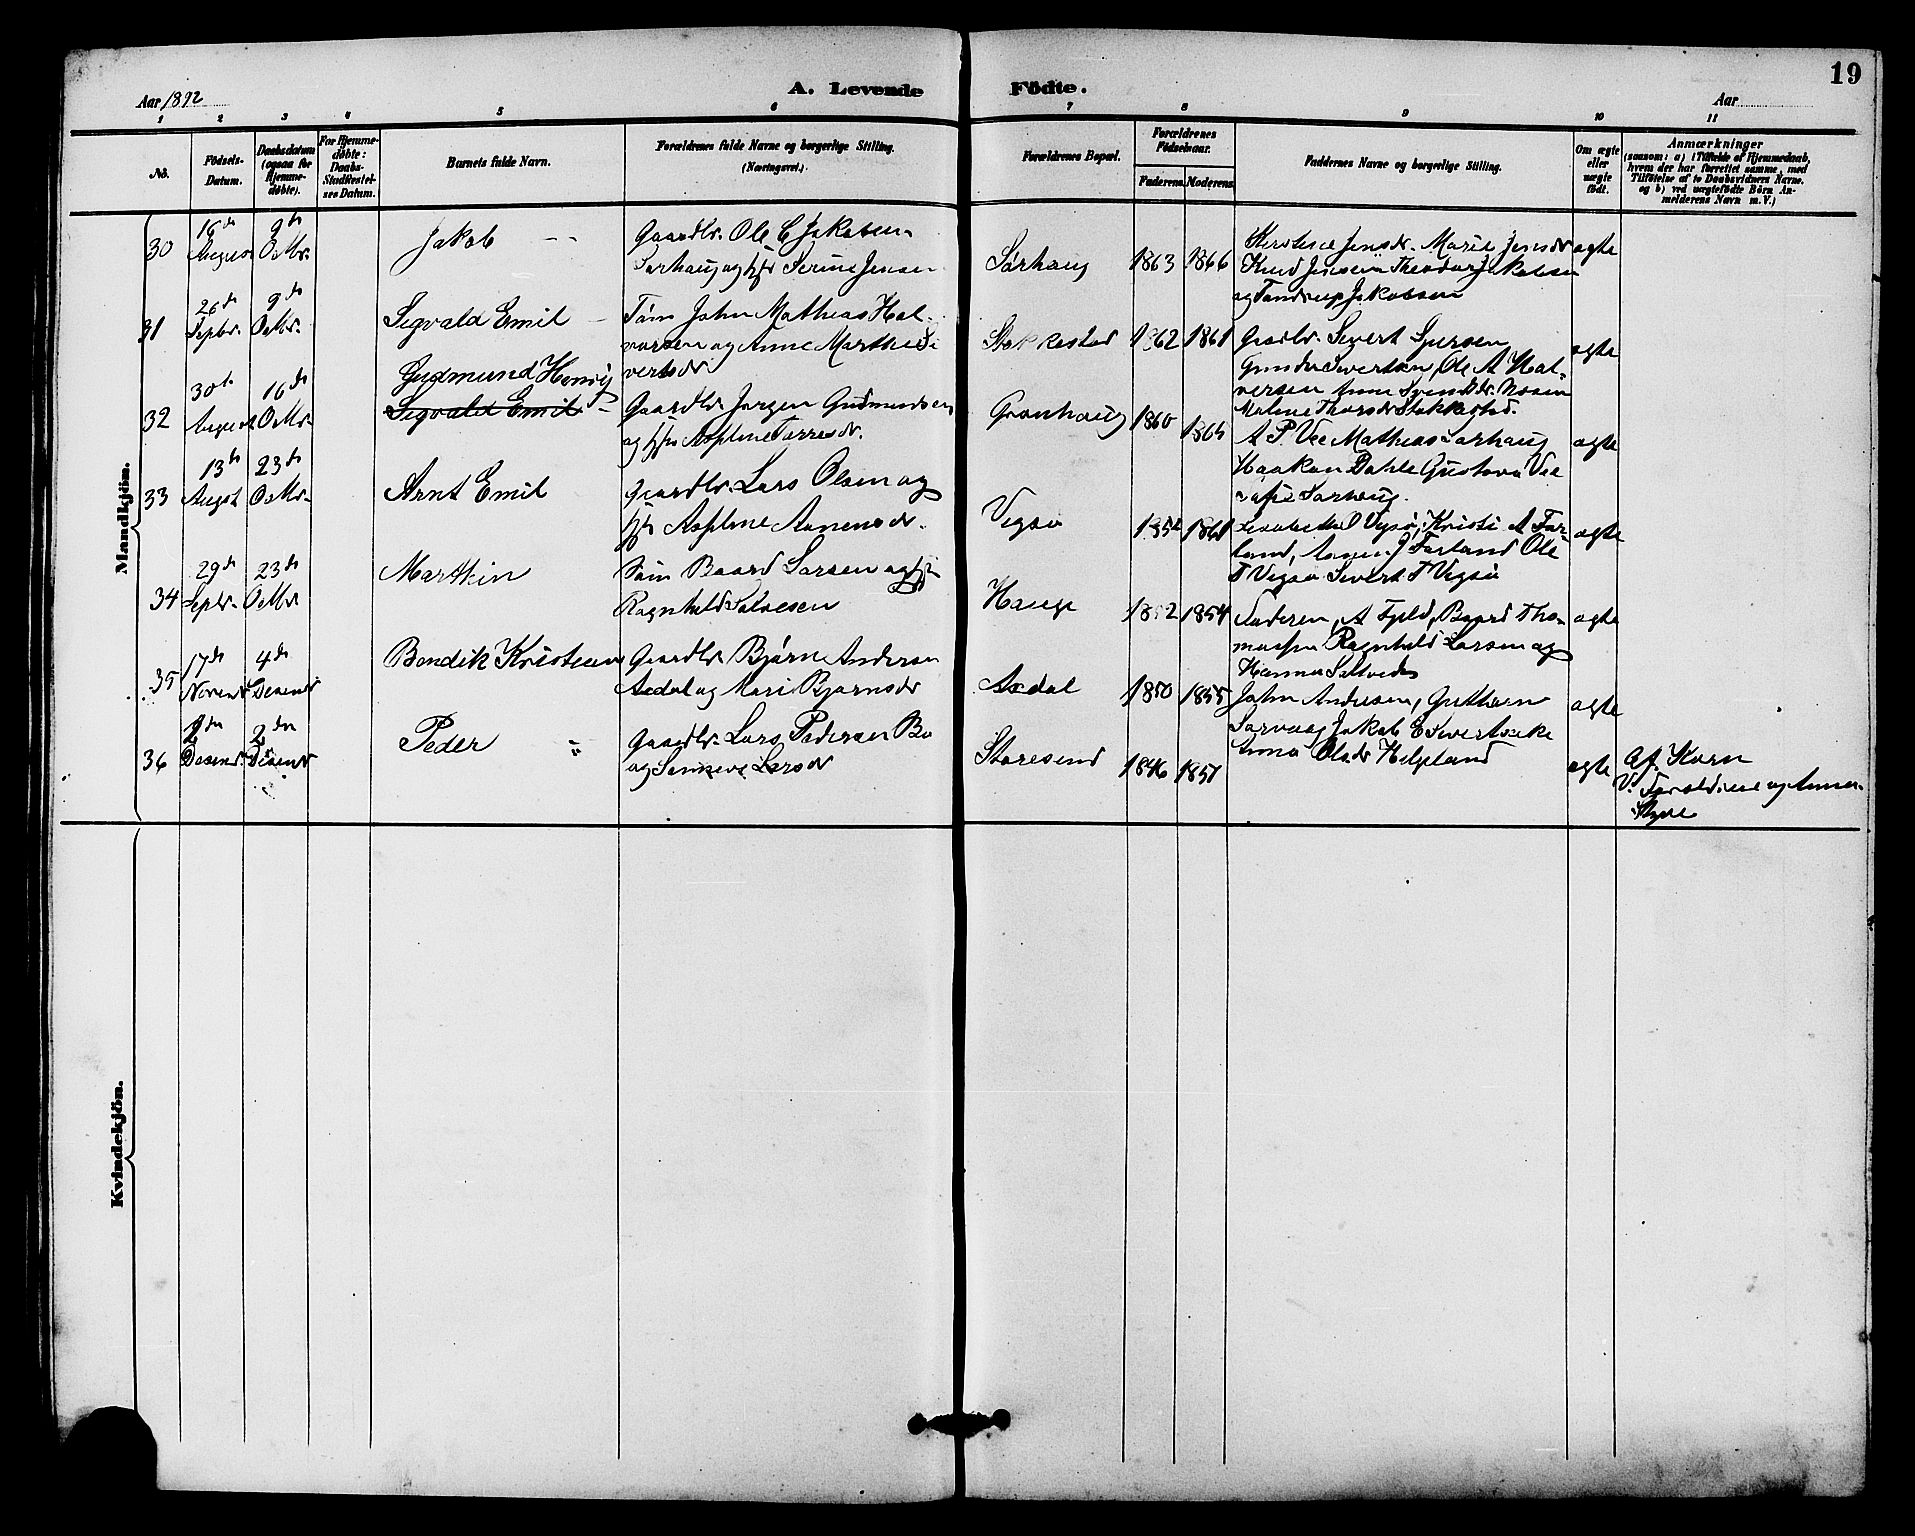 19
Aar 1892
A. Levende Födte.
Aar
1 2 3 4 5 6 7 8 9 10 11
No.
Födsels-
Datum.
Daabsdatum
(ogsaa for
Hjemme-
döbte).
For Hjemme-
döbte:
Daabs-
Stadfæstel-
ses Datum.
Barnets fulde Navn.
Forældrenes fulde Navne og borgerlige Stilling.
(Næringsvei.)
Forældrenes Bopæl.
Forældrenes
Födselsaar.
Faderens. Moderens.
Faddernes Navne og borgerlige Stilling.
Om ægte
eller
uægte
födt.
Anmærkninger
(saasom: a) i Tilfælde af Hjemmedaab,
hvem der har forrettet samme, med
Tilföielse af to Daabsvidners Navne.
og b) ved uægtefödte Börn An-
melderens Navn m. V.)
Mandkjön.
30
16de
August
9de
Oktbr.
Jakob
Gaardbr. Ole C Jakobsen
Sørhaug og hfr Serine Jensen
Sørhaug
1863 1866
Jensdr. Marie Jensdr
Knud Jensen Theodor Jakobsen
og Tandrup Jakobsen
ægte
31
26de
Septbr.
9de
Oktbr.
Sigvald Emil
Tøm John Mathias Hal-
vorsen og Anne Marthe Si
vertsdr
Stokkestad
1862 1861
Gaardbr. Sivert Sjursen
Gunder Sivertsen, Ole A Hal-
versen Anne Svendsdr.
Malene Thorsdr Stokkestad.
ægte
32
30te
August
16de
Oktbr.
Gudmund Henrig
Sigvald Emil
Gaardbr. Jørgen Gudmundsen
og hfr Asseline Torresdr.
Grønhaug
1860 1865
A P. Vee Mathias Sørhaug
Haakon Dahle Gustava Vee
Sørhaug.
ægte
33
13de
August
23de
Oktbr.
Arnt Emil
Gaardbr. Lars Olsen og
hfr Asseline Aanensdr.
Vigsø
1852 1861
P Vigsø, Kristi A Før-
land, Aanen J Førland Ole
T Vigsø Sivert T Vigsø
ægte
34
29de
Septbr.
23de
Oktbr
Marthin
Tøm Baard Larsen og hfr
Ragnhild Salvesen
Hauge
1852 1854
Faderen, A Fjeld, Baard Tho-
massen Ragnhild Larsen og
Hanna
ægte
35
17de
Novembr
4de
Desembr
Bendik Kristian
Gaardbr. Bjørne Andersen
Aedal og Mari Bjørnsdr
Aedal
1850 1855
John Andersen, Guthorm
Sørvaag Jakob E
Anna Olsdr Helgeland
ægte
36
2den
Desembr.
2den
Desembr
Peder
Gaardbr. Lars Pedersen Bø
og Larsdr
Storesund
1846 1851
ægte
Af Korn
V. Foreldrene og Anna
Kvindekjön.